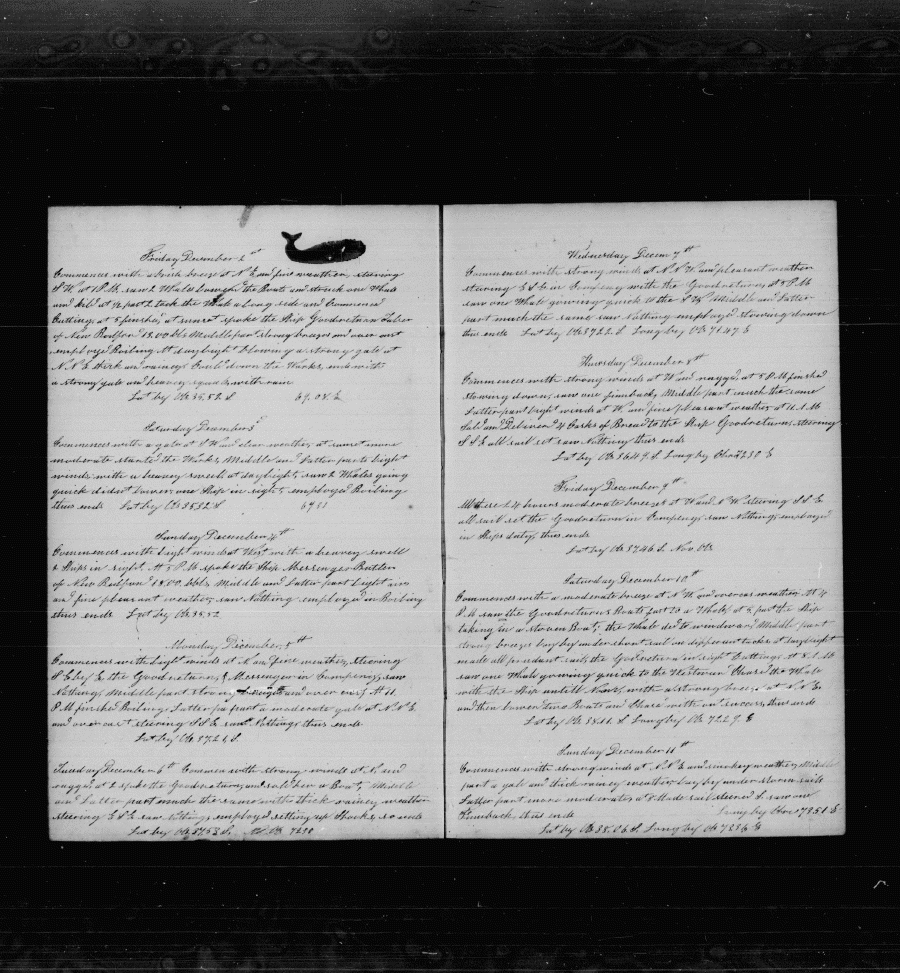 Friday December 2nd
Commences with a brisk breeze at N E and fine weather steering
S W. at 1 P.M. saw 2 Whales lowered the Boats and struck one Whale
and kild at ½ past 2 took the Whale a Long side and Commenced
Cutting, at 5 finished, at sunset spoke the Ship Goodreturn Taber
of New Bedford 1800 bbls Middle part strong breezes and over cast
employed Boiling At daylight blowing a strong gale at
N.N.E thick and rainey Coold down the Works, ends with
a strong gale and heavey squalls with rain
Lat by Ob 35.52 S 69.08 E
Saturday December 3
Commences with a gale at S W and clear weather, at sunset more
moderate started the Works, Middle and Latter parts light
winds with a heavey swell at daylight, saw 2 Whales going
quick didnt Lower, one Ship in sight, employed Boiling
thus ends Lat by Ob 35.52 S 69 11
Sunday December 4th
Commences with Light winds at West with a heavey swell
2 Ships in sight. At 5 P.M spoke the Ship Messenger
of New Bedford 1800 bbls Middle and Latter part Light airs
and fine pleasant weather, saw Nothing employed in Boiling
thus ends Lat by Ob 35.52
Monday December 5th
Commences with Light winds at N. and fine weather, steering
S E by E the Goodreturn & Messenger in Company, saw
Nothing, Middle part strong breezes and over cast, At 11
P.M finished Boiling, Latter part a moderate gale at N.N.E
and over cast steering S.S.E saw Nothing thus ends
Lat by Ob 37.21 S
Tuesday December 6th Commences with strong winds at N. and
rugged at 2 spoke the Goodreturn and sold her a Boat, Middle
and Latter part much the same with thick rainey weather
steering E.S.E saw Nothing, employed setting up Shooks, so ends
Lat by Ob 37.53 S. No Ob 7230
Wednesday Decem 7th
Commences with strong winds at N.N.W. and pleasant weather
steering S.S.E in Company with the Goodreturn, at 5 P.M
saw one Whale gowing quick to the S W Middle and Latter
part much the same saw Nothing employed stowing down
thus ends Lat by Ob 37.22. S Long by Ob 71.47 E
Thursday December 8th
Commences with strong winds at W and rugged, at 5 P.M finished
stowing down, saw one finback, Middle part much the same
Latter part light winds at W. and fine pleasant weather, at 11 A M
Sold and Delivered 4 Casks of Bread to the Ship Goodreturn, steering
S S E all sail set saw Nothing thus ends
Lat by Ob 36.49. S Long by Chro 7230 E
Friday December 9th
These 24 hours moderate breezes at W and N W steering S S E
all sail set the Goodreturn in Company, saw Nothing, employed
in Ships duty, thus ends
Lat by Ob 37.46 S. Non Ob
Saturday December 10th
Commences with a moderate breeze at N.W. and overcast weather, At 4
P.M. saw the Goodreturns Boats fast to a Whale, at 5 past the Ship
taking in a Stoven Boat, the Whale dic to windward, Middle part
strong breezes lay by under short sail on different tacks at daylight
made all prudant sail, the Goodreturn in sight Cutting, At 8 A.M
saw one Whale gowing quick to the Westward Chased the Whale
with the Ship untill Noon, with a strong breeze at N.N.E.
and then Lowered two Boats and Chase with out success, thus ends
Lat by Ob 38.11. S Long by Ob 7229. E
Sunday December 11th
Commences with strong winds at N.N.E and smokey weather, Middle
part a gale and thick rainey weather Lay by under Storm sails
Latter part more moderate, at 8 Made sail steered S. saw one
Humback thus ends Long by Chro 7351 E
Lat by Ob 38.06 S Long by Ob 7336 E